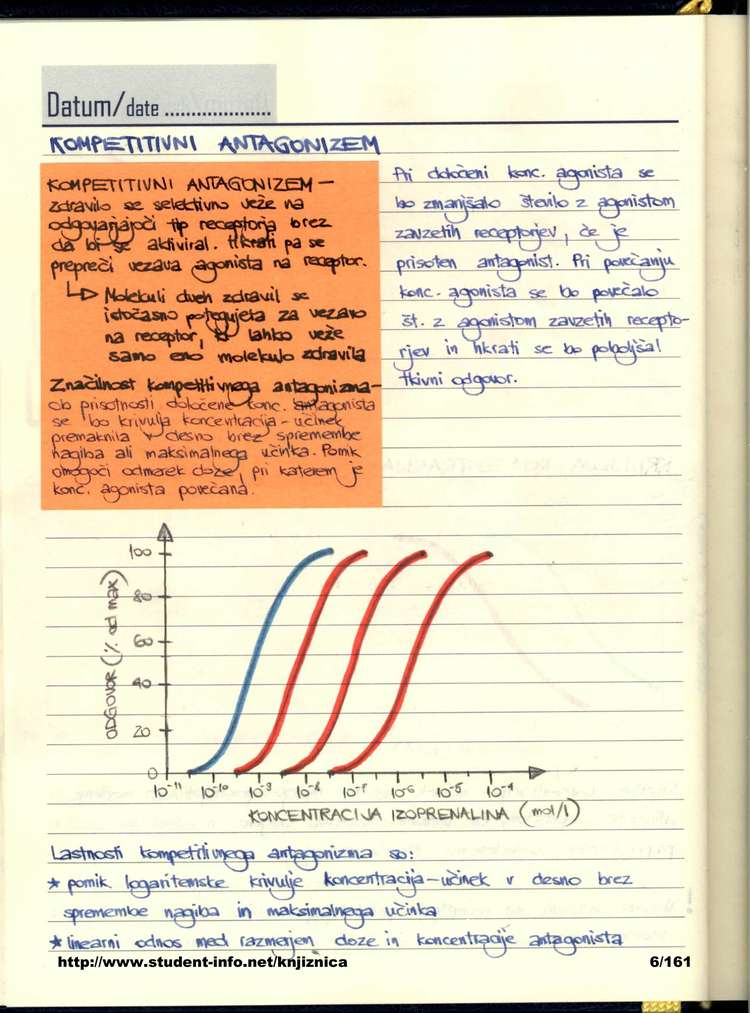 Datum/date ....................
KOMPETITIVNI ANTAGONIZEM
KOMPETITIVNI ANTAGONIZEM –
zdravilo se selektivno veže na
odgovarjajoči tip receptorja brez
da bi se aktiviral. Hkrati pa se
prepreči vezava agonista na receptor.
Molekuli dveh zdravil se
istočasno potegujeta za vezavo
na receptor, ki lahko veže
samo eno molekulo zdravila
Značilnost kompetitivnega antagonizma –
ob prisotnosti določene konc. antagonista
se bo krivulja koncentracija – učinek
premaknila v desno brez spremembe
nagiba ali maksimalnega učinka. Pomik
omogoči odmerek doze, pri katerem je
konc. agonista povečana.
Pri določeni konc. agonista se
bo zmanjšalo število z agonistom
zavzetih receptorjev, če je
prisoten antagonist. Pri povečanju
konc. agonista se bo povečalo
št. z agonistom zavzetih recepto-
rjev in hkrati se bo poboljšal
tkivni odgovor.
ODGOVOR (% od max)
100
80
60
40
20
0
10⁻¹¹ 10⁻¹⁰ 10⁻⁹ 10⁻⁸ 10⁻⁷ 10⁻⁶ 10⁻⁵ 10⁻⁴
KONCENTRACIJA IZOPRENALINA (mol/l)
Lastnosti kompetitivnega antagonizma so:
* pomik logaritemske krivulje koncentracija – učinek v desno brez
spremembe nagiba in maksimalnega učinka
* linearni odnos med razmerjem doze in koncentracije antagonista
http://www.student-info.net/knjiznica 6/161